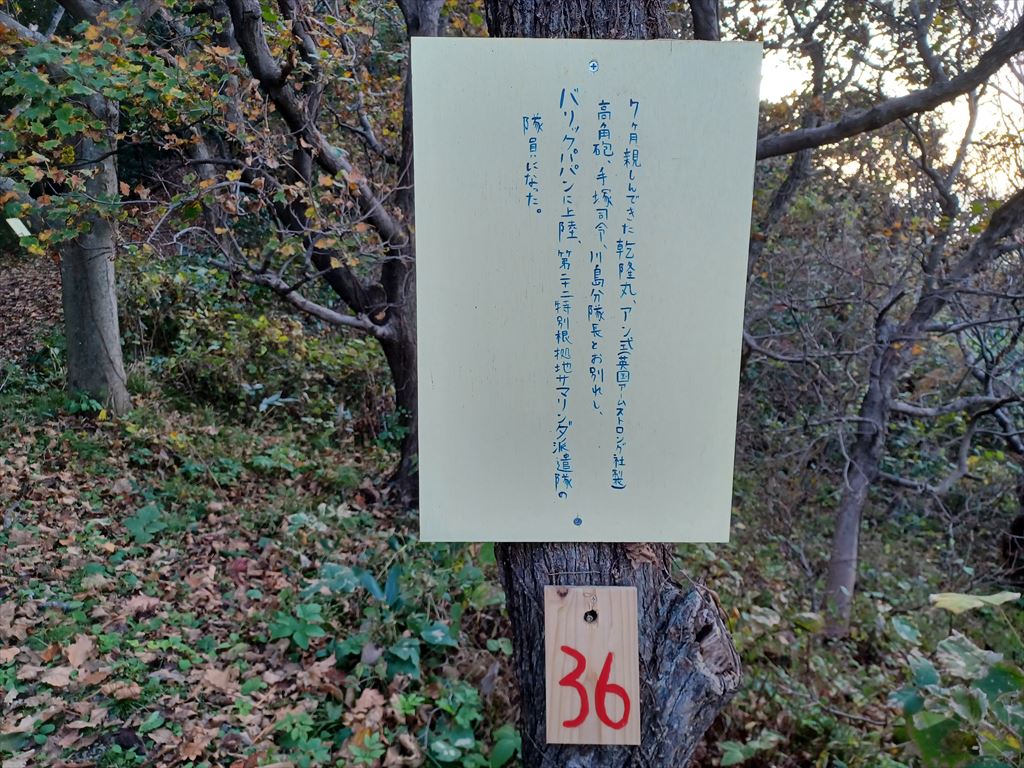 7ヶ月親しんできた乾隆丸、アン式(英国アームストロング社製)
高角砲、手塚司令、川島分隊長とお別れし、
バリックパパンに上陸、第二十二特別根拠地サマリンダ派遣隊の
隊員になった。
36